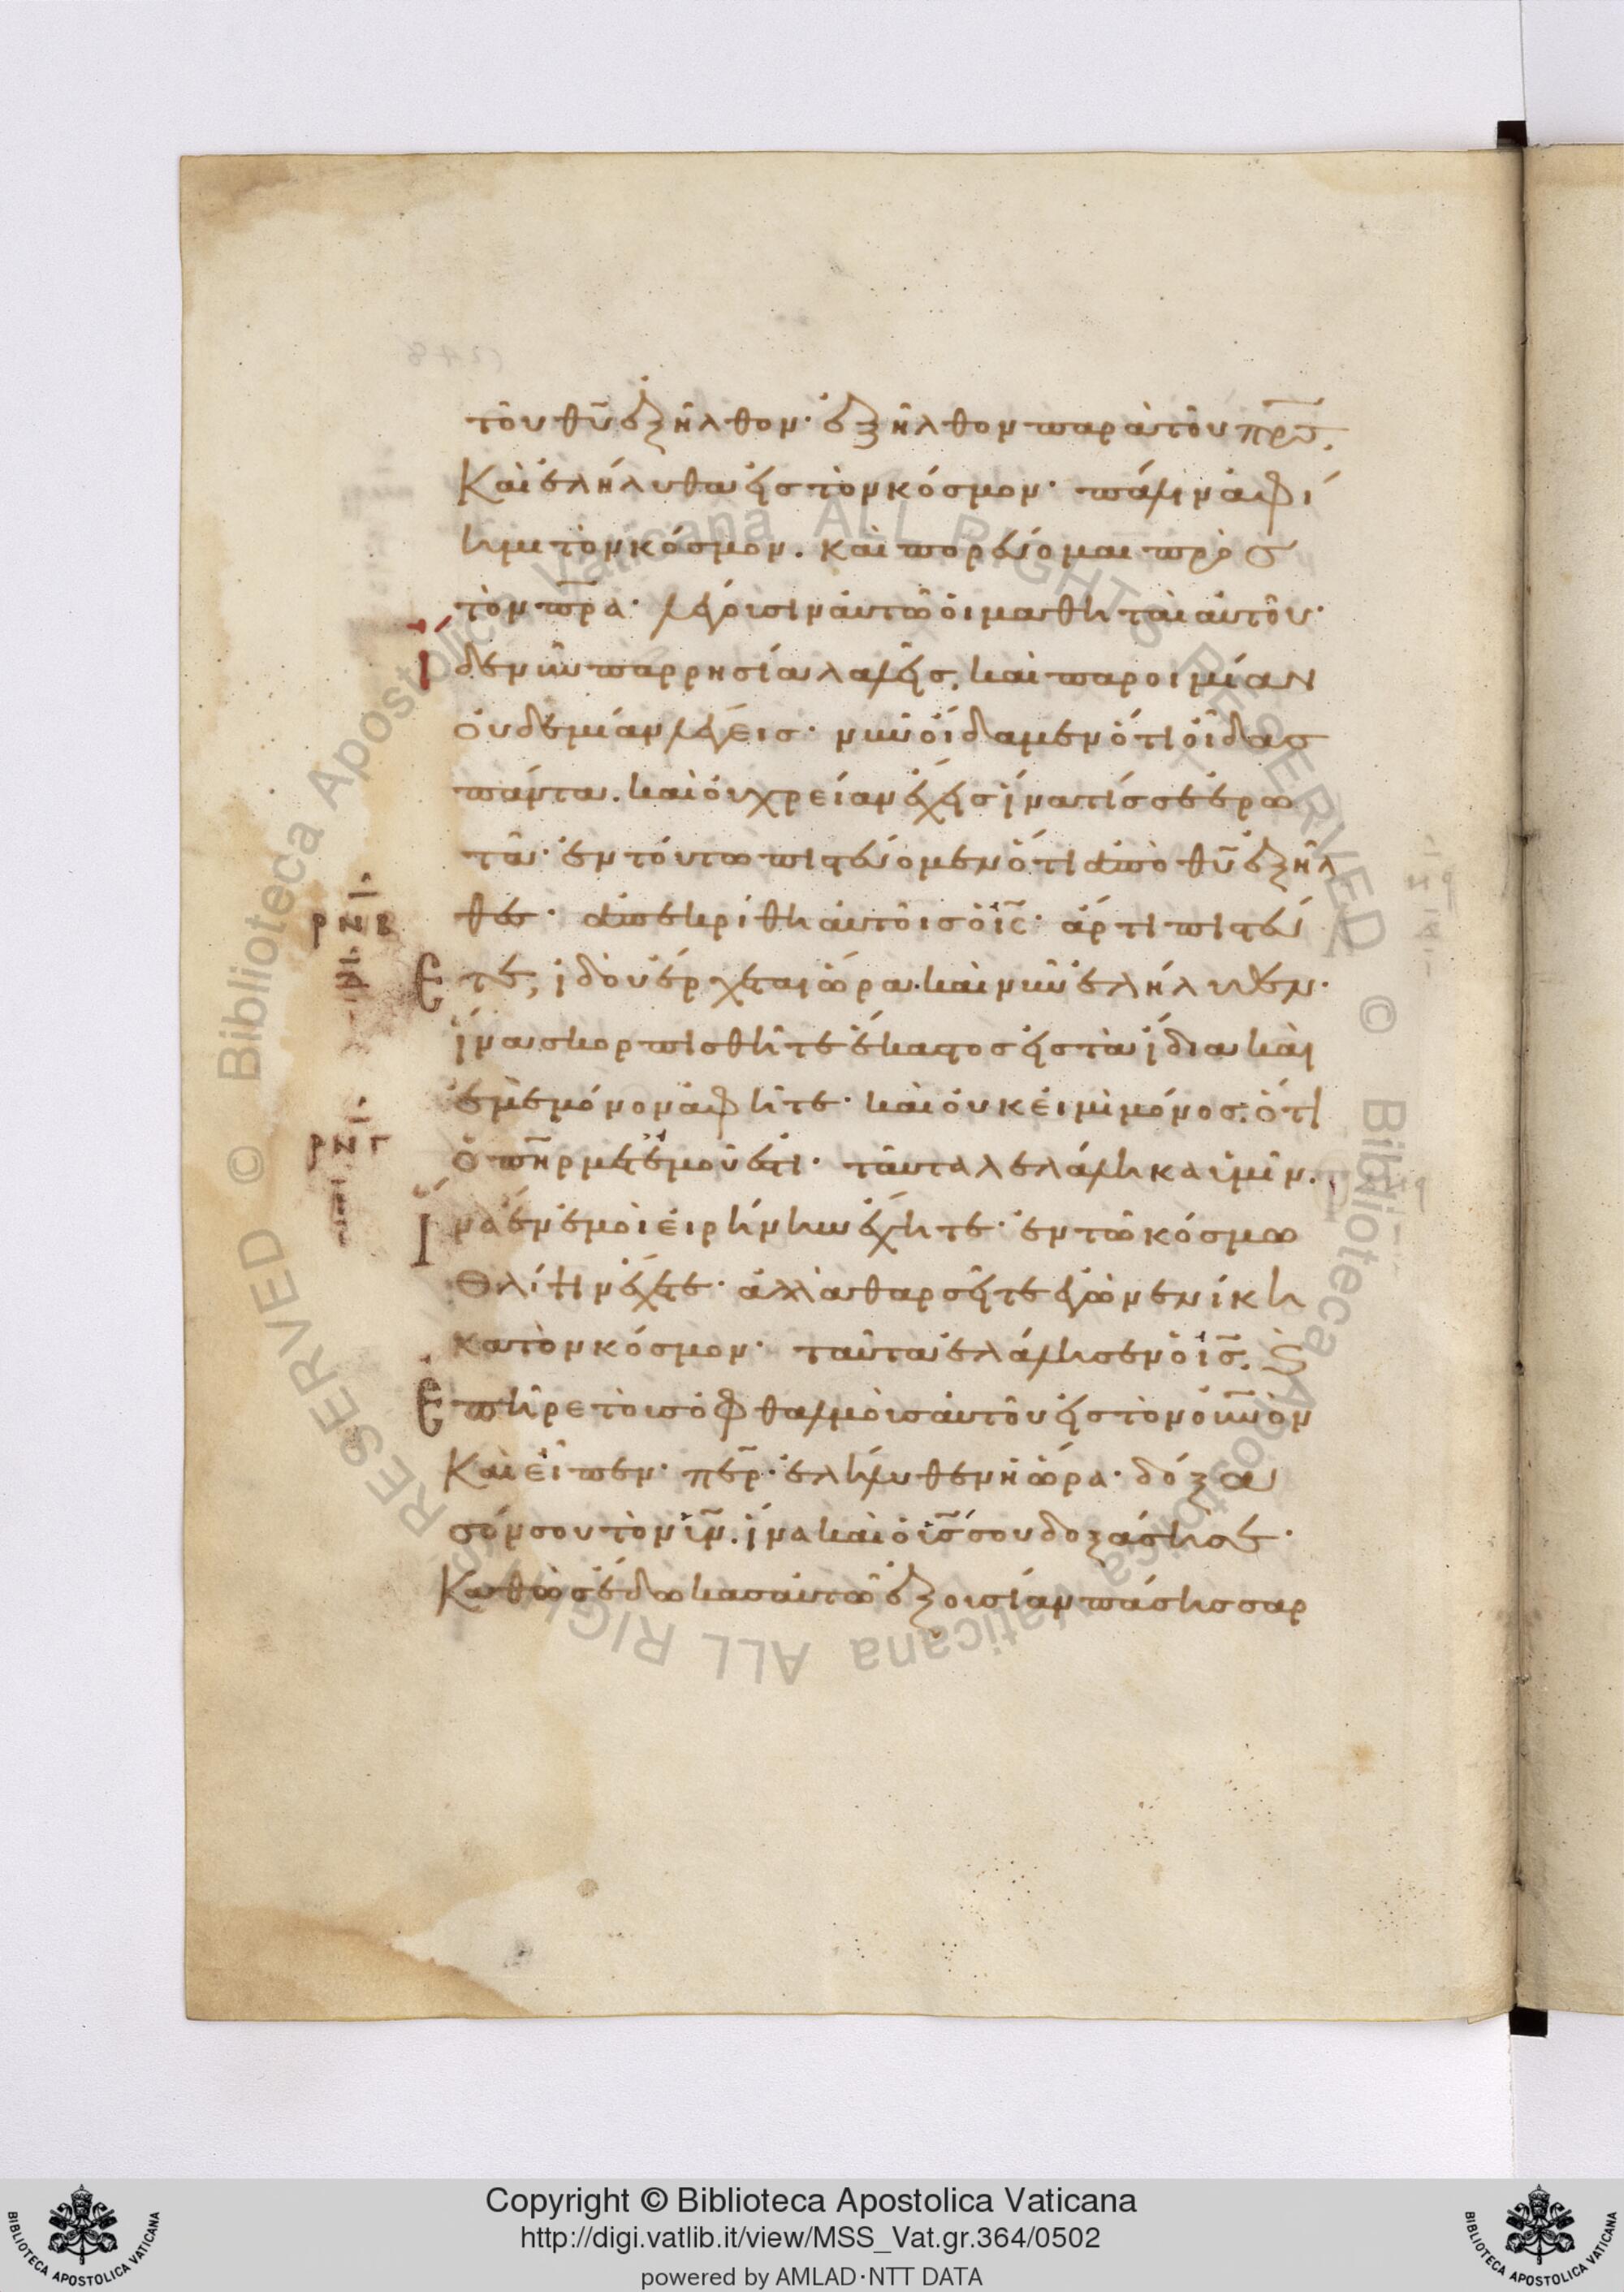 τοῦ θῡ ἐξῆλθον· ἐξῆλθον παρὰ τοῦ πρ̅σ.
Καὶ ἐλήλυθα εἰς τὸν κόσμον· πάλιν ἀφί
ημι τὸν κόσμον. καὶ πορεύομαι πρὸσ
τὸν πρ̅α· λέγουσιν αὐτῶ οἱ μαθηταὶ αὐτοῦ·
Ἴδε νῦν παρρησία λαλεῖς, καὶ παροιμίαν
οὐδεμίαν λέγεισ· νῦν οἴδαμεν ὅτι οἶδας
πάντα. καὶ οὐ χρείαν ἔχεις ἵνα τίς σε ἐρω
τᾶ· ἐν τούτω πιστεύομεν ὅτι ἀπὸ θῡ ἐξῆλ
θες· ἀπεκρίθη αὐτοῖς ὁ ι̅ς· ἄρτι πιστεύ
Ετε, ἰδοὺ ἔρχεται ὥρα καὶ νῦν ἐλήλυθεν·
ἵνα σκορπισθῆτε ἕκαστος εἰς τὰ ἴδια καὶ
ἐμὲ μόνον ἀφῆτε· καὶ οὐκ εἰμὶ μόνος· ὅτι
ὁ πη̅ρ μετ' ἐμοῦ ἐστι· ταῦτα λελάληκα ὑμῖν.
Ἵνα ἐν ἐμοὶ εἰρήνην ἔχητε· ἐν τῶ κόσμω
θλίψιν ἔχετε· ἀλλὰ θαρσεῖτε ἐγὼ νενίκη
κα τὸν κόσμον· ταῦτα ἐλάλησεν ὁ ι̅ς. Ϗ
Ἐπῆρε τοὺς ὀφθαλμοὺς αὐτοῦ εἰς τὸν οὐ̅νὸν
Καὶ εἶπεν· πε̅ρ· ἐλήλυθεν ἡ ὥρα· δόξα
σόν σου τὸν υ̅ν. ἵνα καὶ ὁ υ̅ς σου δοξάση σέ·
Καθὼς ἔδωκας αὐτῶ ἐξουσίαν πάσης σαρ
ι
ρνβ
ι
ρνγ
Copyright © Biblioteca Apostolica Vaticana
http://digi.vatlib.it/view/MSS_Vat.gr.364/0502
powered by AMLAD·NTT DATA
BIBLIOTECA APOSTOLICA VATICANA
BIBLIOTECA APOSTOLICA VATICANA
© Biblioteca Apostolica Vaticana ALL RIGHTS RESERVED
© Biblioteca Apostolica Vaticana ALL RIGHTS RESERVED